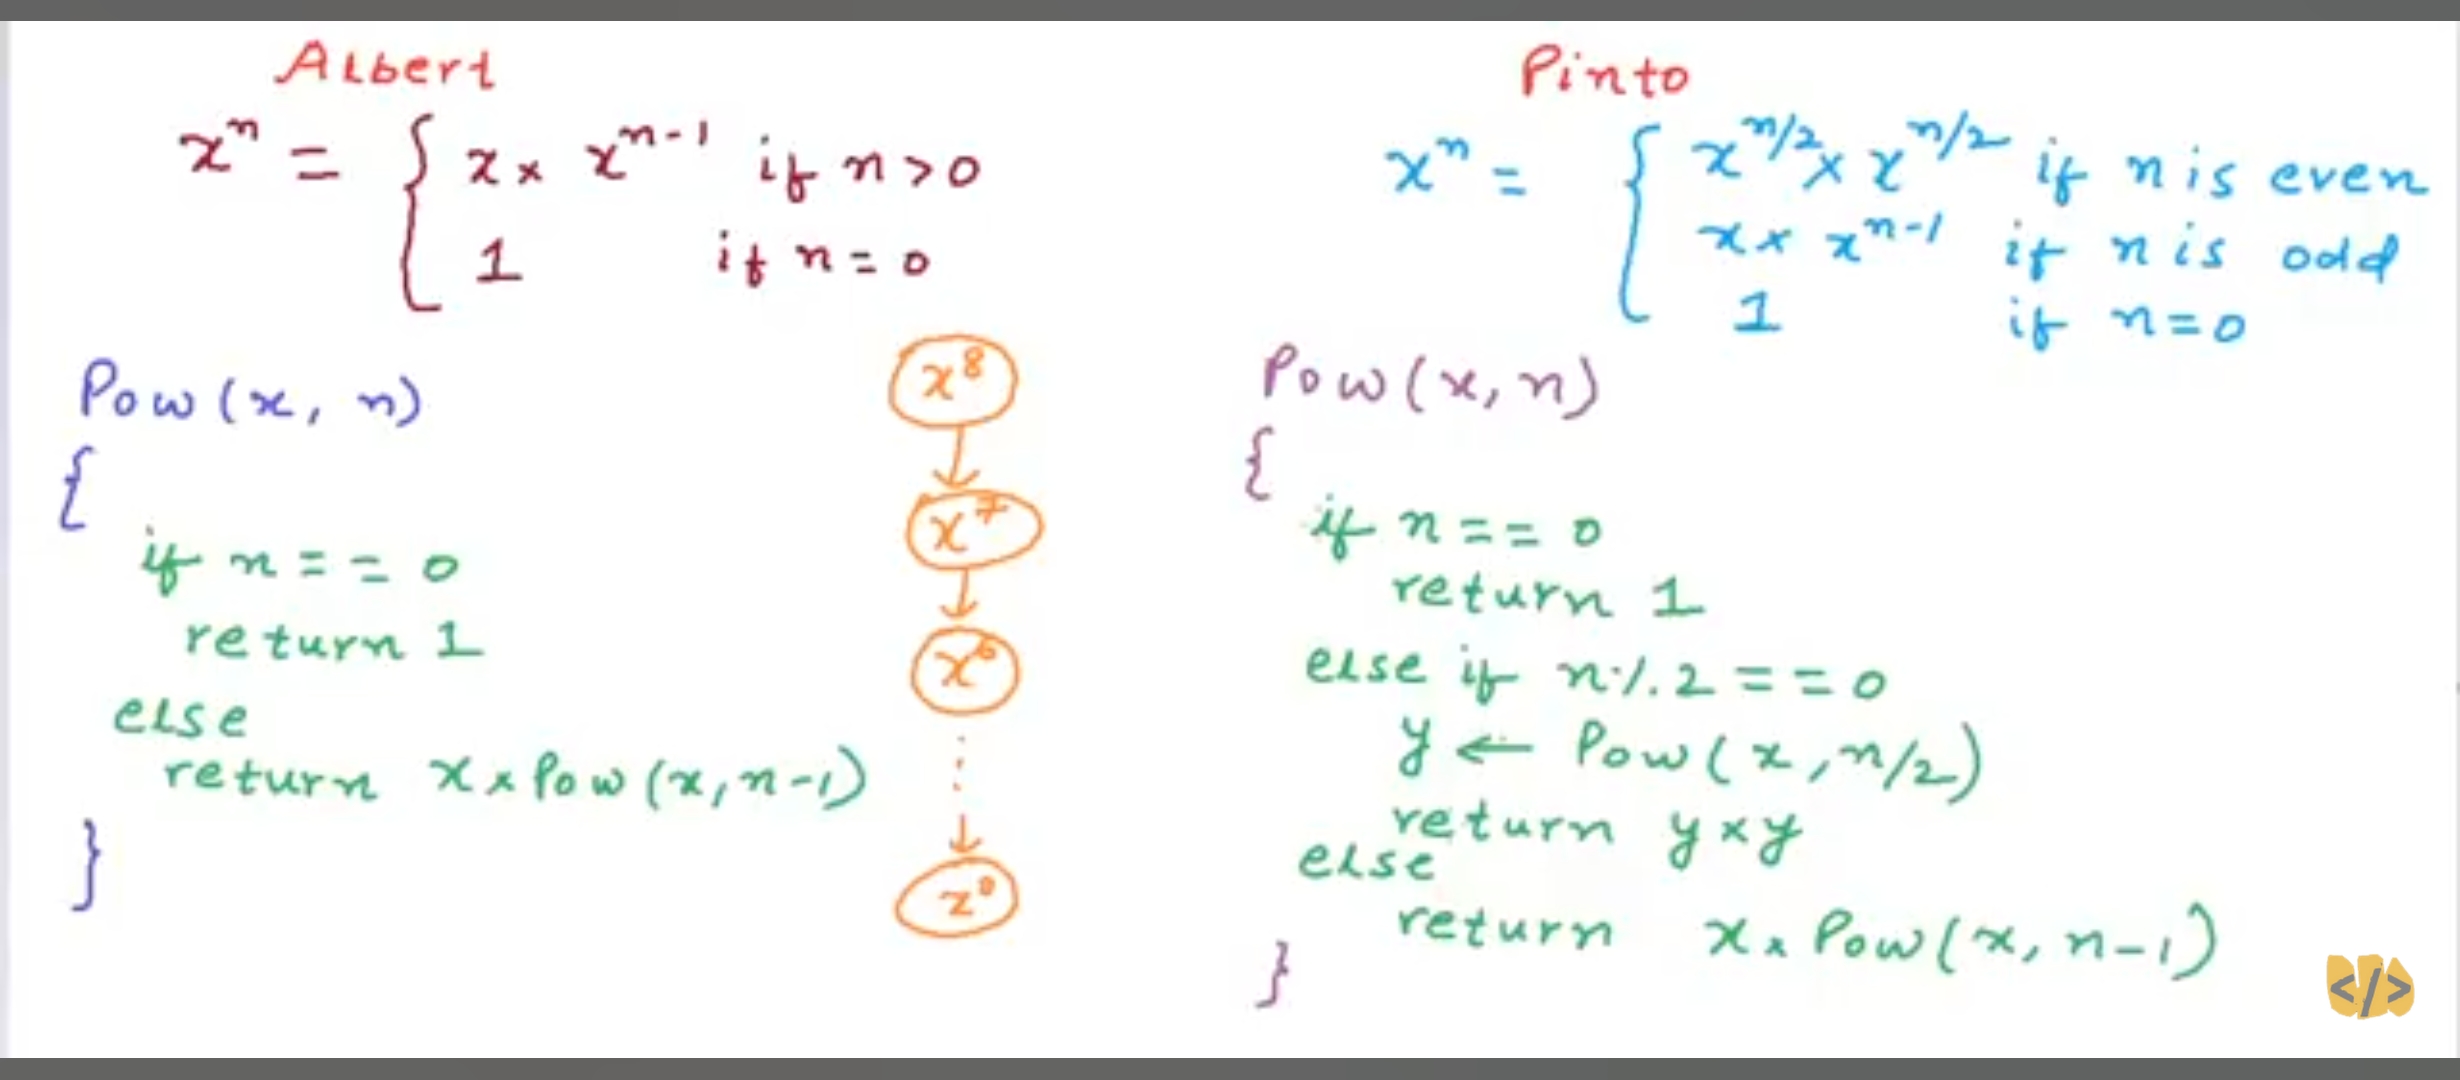 Albert
xⁿ = { x × xⁿ⁻¹ if n > 0
1 if n = 0
Pow (x, n)
{
if n == 0
return 1
else
return x × Pow (x, n-1)
}
x⁸
x⁷
x⁶
x⁰
Pinto
xⁿ = { x^n/2 × x^n/2 if n is even
x × xⁿ⁻¹ if n is odd
1 if n = 0
Pow (x, n)
{
if n == 0
return 1
else if n % 2 == 0
y ← Pow (x, n/2)
return y × y
else
return x × Pow (x, n-1)
}
</>